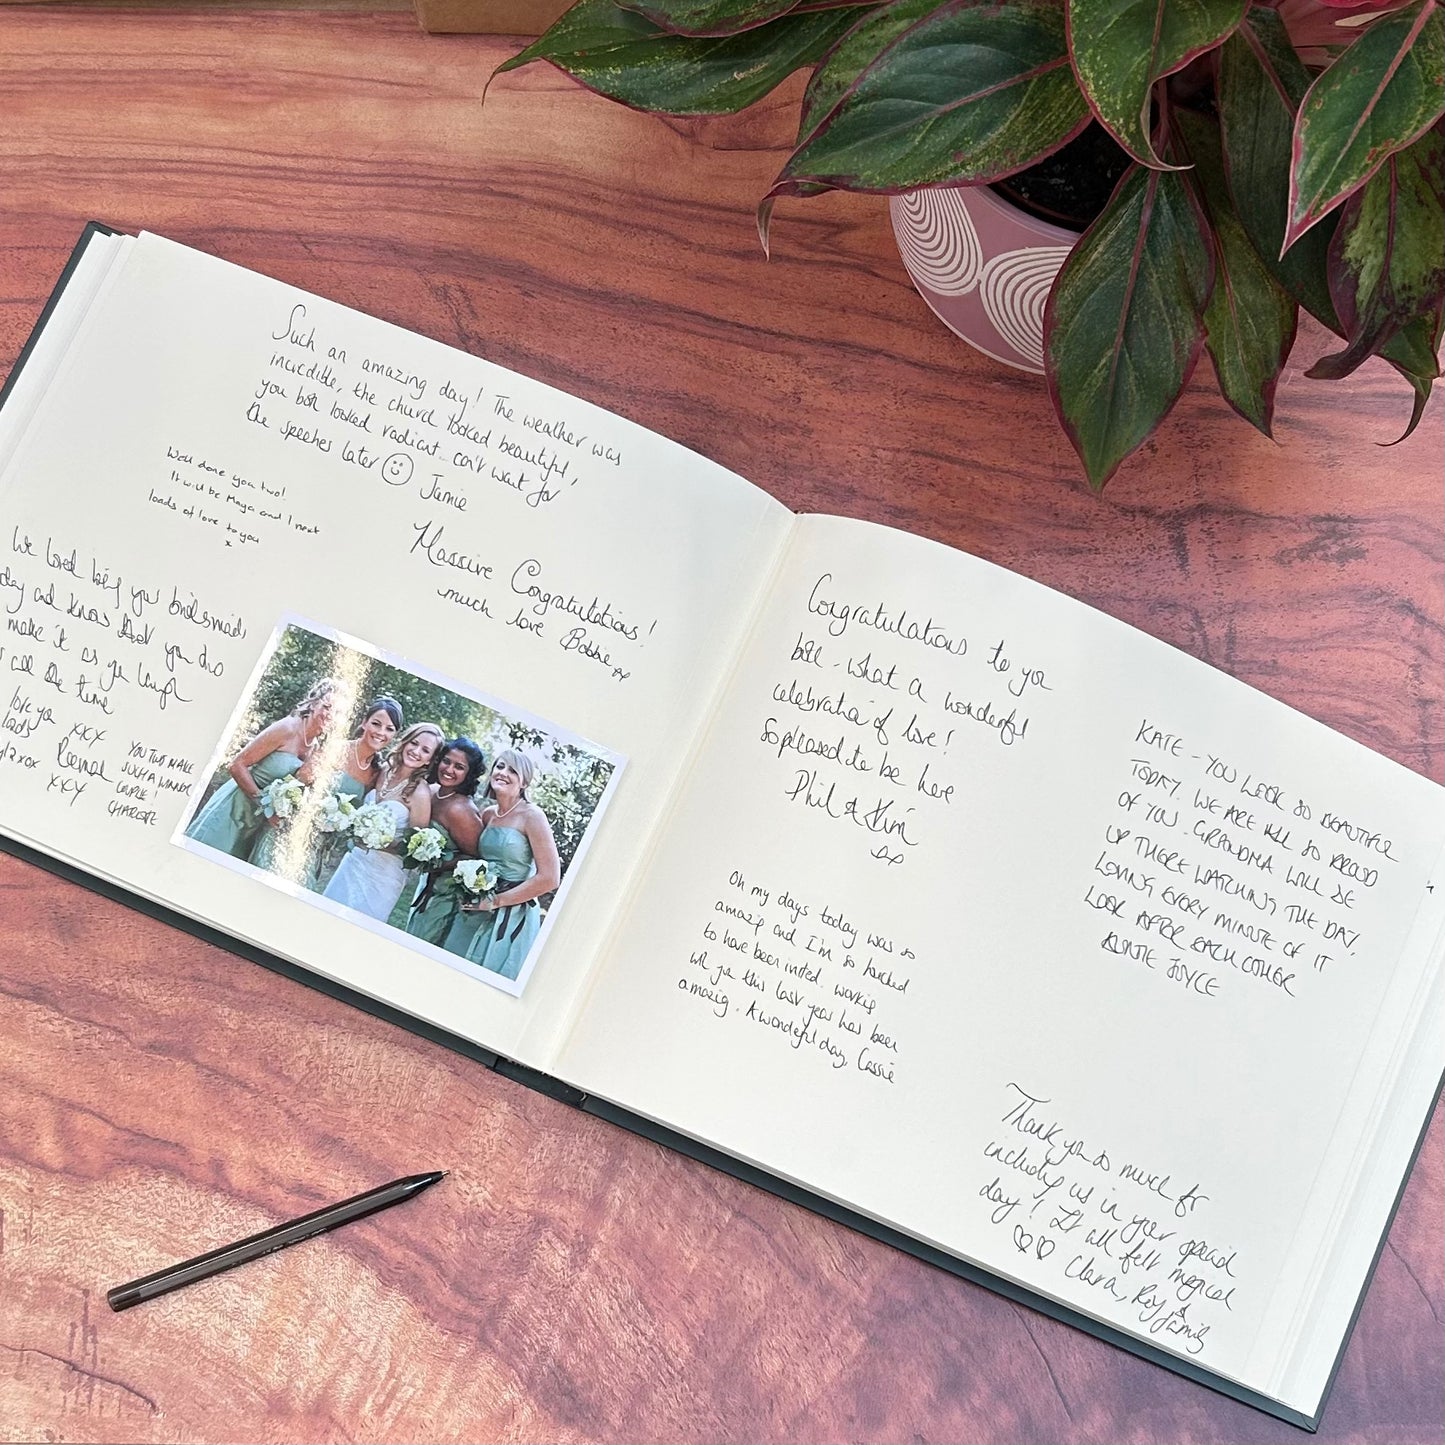 Such an amazing day! The weather was
incredible, the church looked beautiful,
you both looked radiant.. can't wait for
the speeches later Jamie
Well done you two!
It will be Maya and I next
loads of love to you
x
Massive Congratulations!
much love Bobbie xx
We loved being your bridesmaids
day and know that you two
make it as you laugh
all the time
love you xxx
xxx
YOU TWO MAKE
SUCH A WINNER
COUPLE!
CHARLOTTE
Congratulations to you
both - what a wonderful
celebration of love!
So pleased to be here
Phil & Kim
xx
Oh my days today was so
amazing and I'm so honoured
to have been invited. working
with you this last year has been
amazing. A wonderful day, Cassie
KATE - YOU LOOK SO BEAUTIFUL
TODAY. WE ARE ALL SO PROUD
OF YOU. GRANDMA WILL BE
UP THERE WATCHING THE DAY,
LOVING EVERY MINUTE OF IT
LOOK AFTER EACH OTHER
AUNTIE JOYCE
Thank you so much for
including us in your special
day! It all felt magical
Clara, Roy &
family